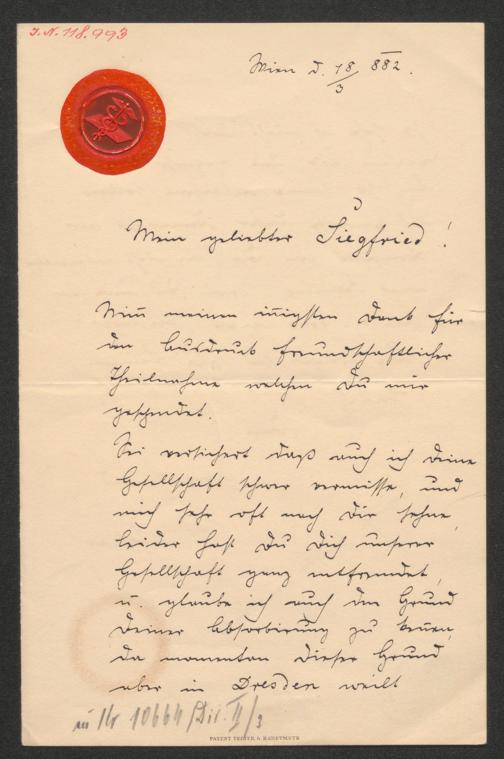 I.N. 118.993
Wien d. 18/3 882.
Mein geliebter Siegfried!
Nim̅ meinen in̅igsten Dank für
den Ausdruck freundschaftlicher
Theilnahme welchen Du mir
gesendet.
Sei versichert daß auch ich Deine
Gesellschaft schwer vermisse, und
mich sehr oft nach Dir sehne,
leider hast Du Dich unserer
Gesellschaft ganz entfremdet,
u. glaube ich auch den Grund
Deiner Absorbirung zu kennen,
da momentan dieser Grund
aber in Dresden weilt
Nr 10664/Dir. II/3